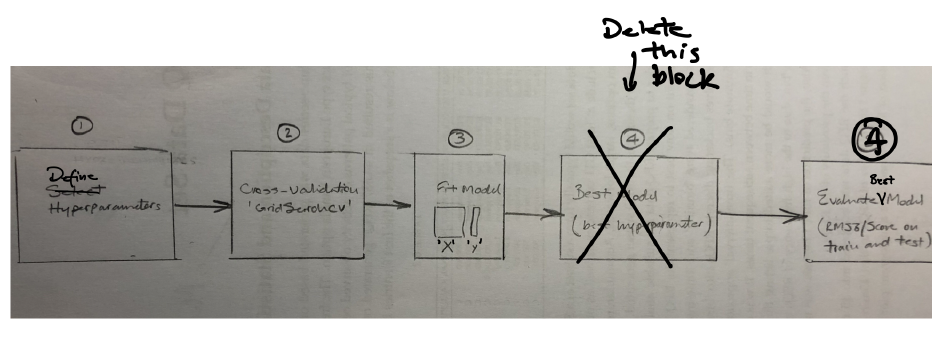 Delete
this
block
①
Define
Select
Hyperparameters
②
Cross-Validation
'GridSearchCV'
③
Fit Model
'X' 'Y'
④
Best Model
(best hyperparameter)
4
Best
Evaluate Model
(RMSE/Score on
train and test)